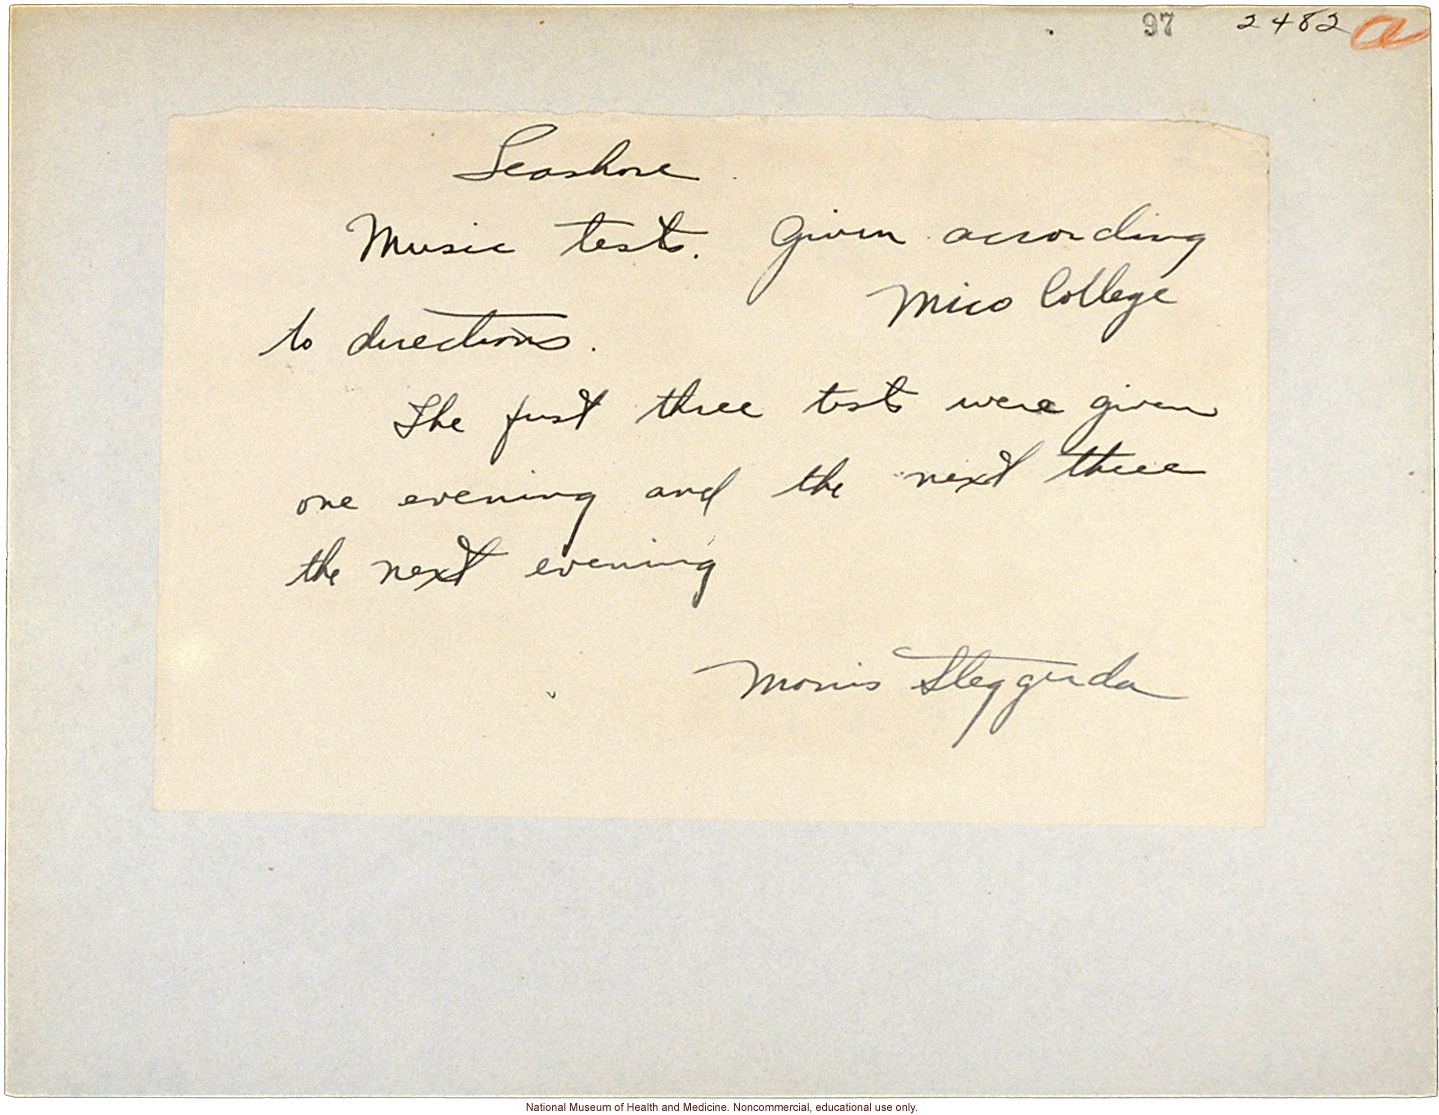 97 2482 a
Seashore
Music tests. Given according
Mico College
to directions.
The first three tests were given
one evening and the next three
the next evening
Morris Steggerda
National Museum of Health and Medicine. Noncommercial, educational use only.